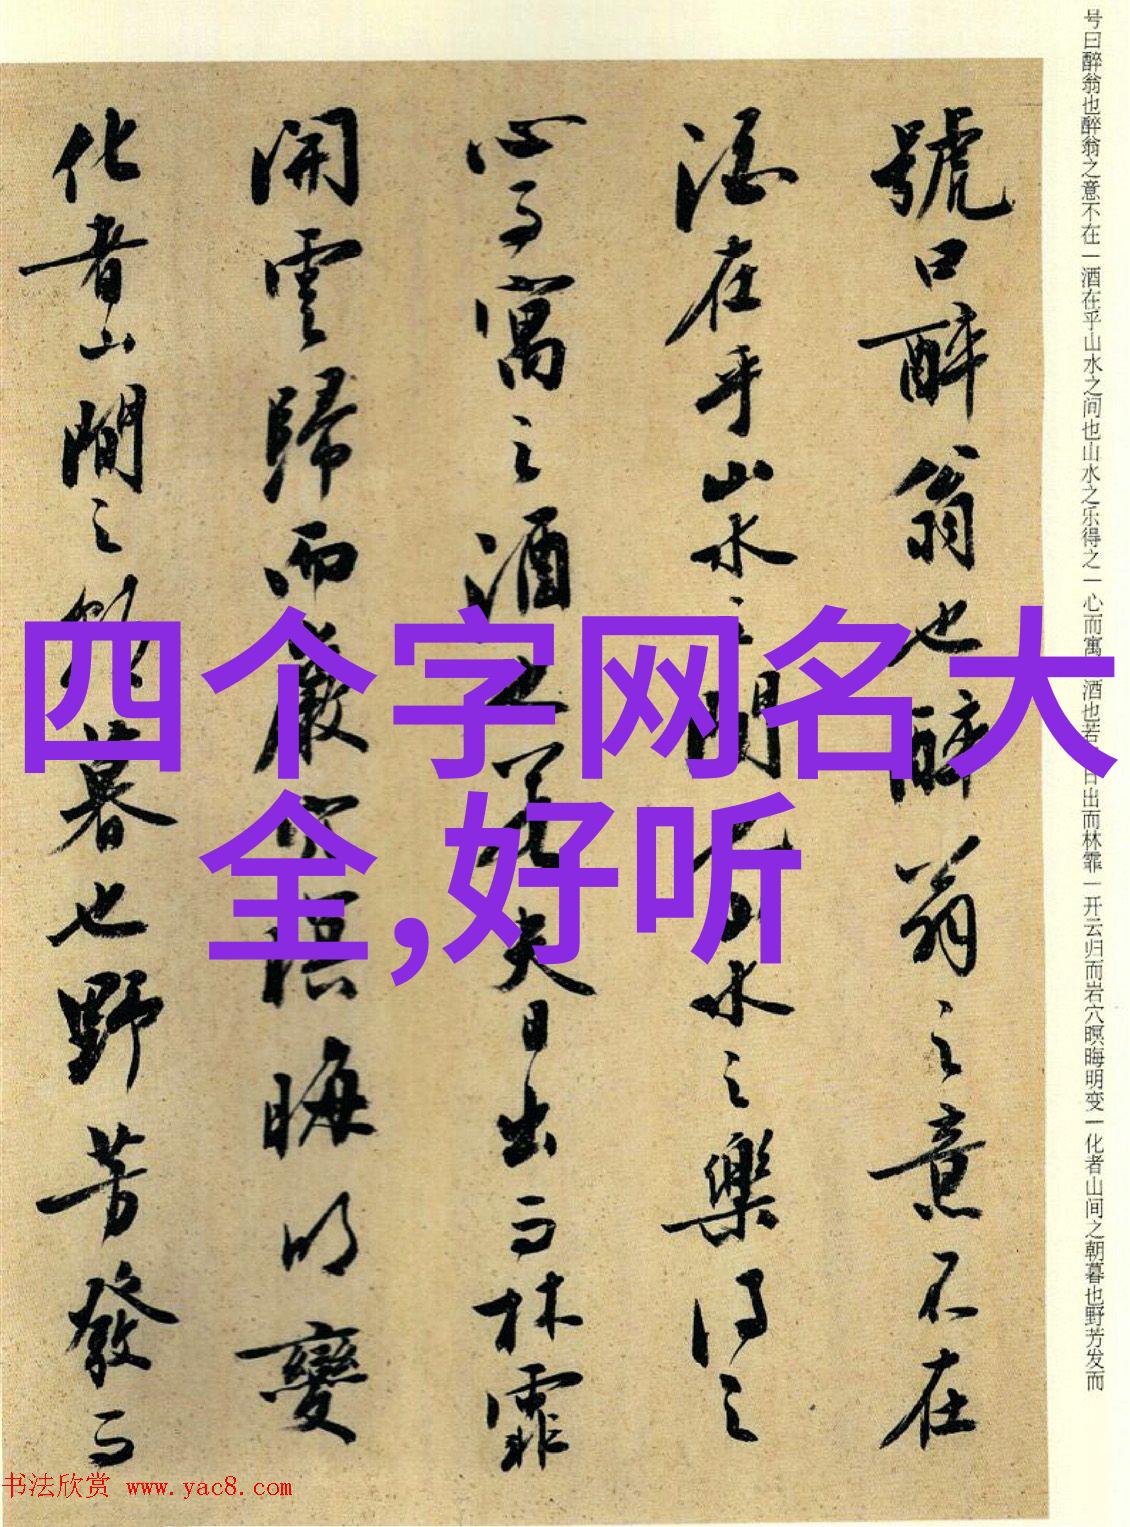 号曰醉翁也醉翁之意不在一酒在乎山水之间也山水之乐得之一心而寓 酒也若 日出而林霏一开云归而岩穴暝晦明变一化者山间之朝暮也野芳发而
號曰醉翁也醉翁之意不在
酒在乎山水之間也山水之樂得之
心而寓之酒也若夫日出而林霏
開雲歸而巖穴暝晦明變
化者山間之朝暮也野芳發而
四个字网名大
全,好听
书法欣赏 www.yac8.com